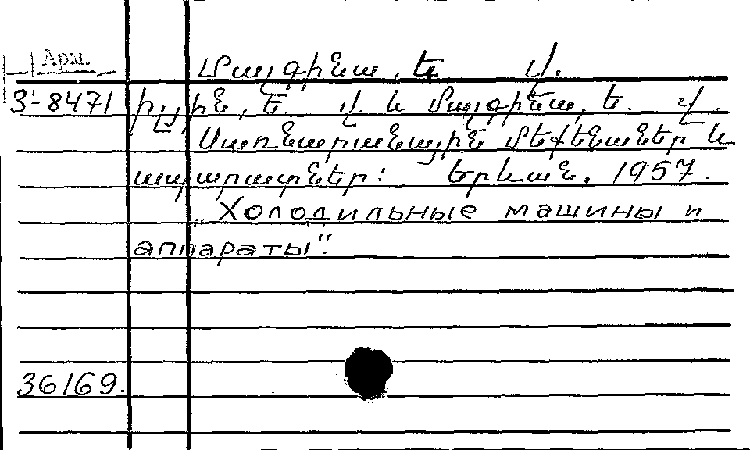 Арм.
Մալգինա, Ե. Վ.
3-8471 Իլյին, Ե. Վ. և Մալգինա, Ե. Վ.
Սառնարանային մեքենաներ և
ապարատներ: Երևան, 1957.
„Холодильные машины и
аппараты".
36169.